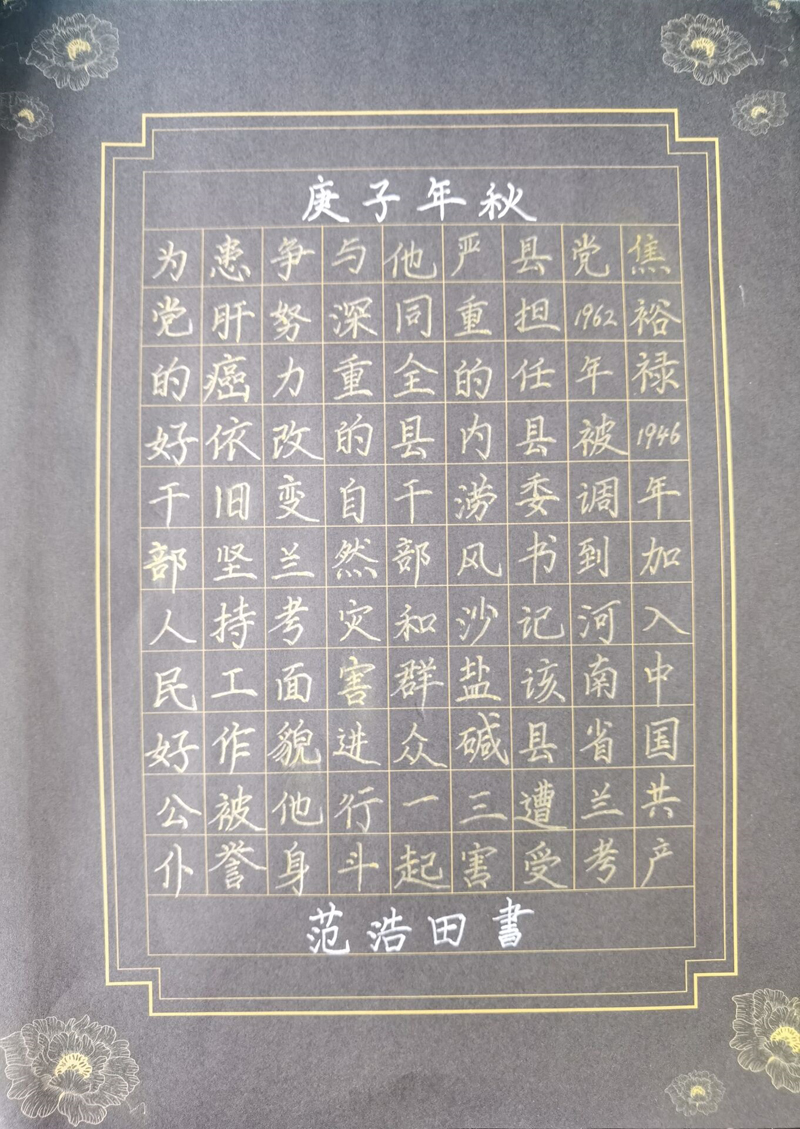 庚子年秋
焦裕禄1946年加入中国共产
党1962年被调到河南省兰考
县担任县委书记该县遭受
严重的内涝风沙盐碱三害
他同全县干部和群众一起
与深重的自然灾害进行斗
争努力改变兰考面貌他身
患肝癌依旧坚持工作被誉
为党的好干部人民好公仆
范浩田書